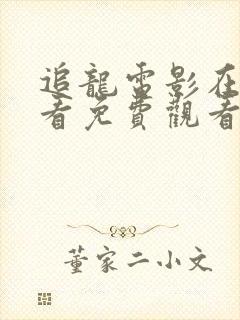 追龍電影在
看免費觀看
董家二小文